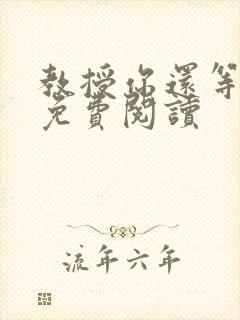 教授你還等
免費閱讀
流年六年